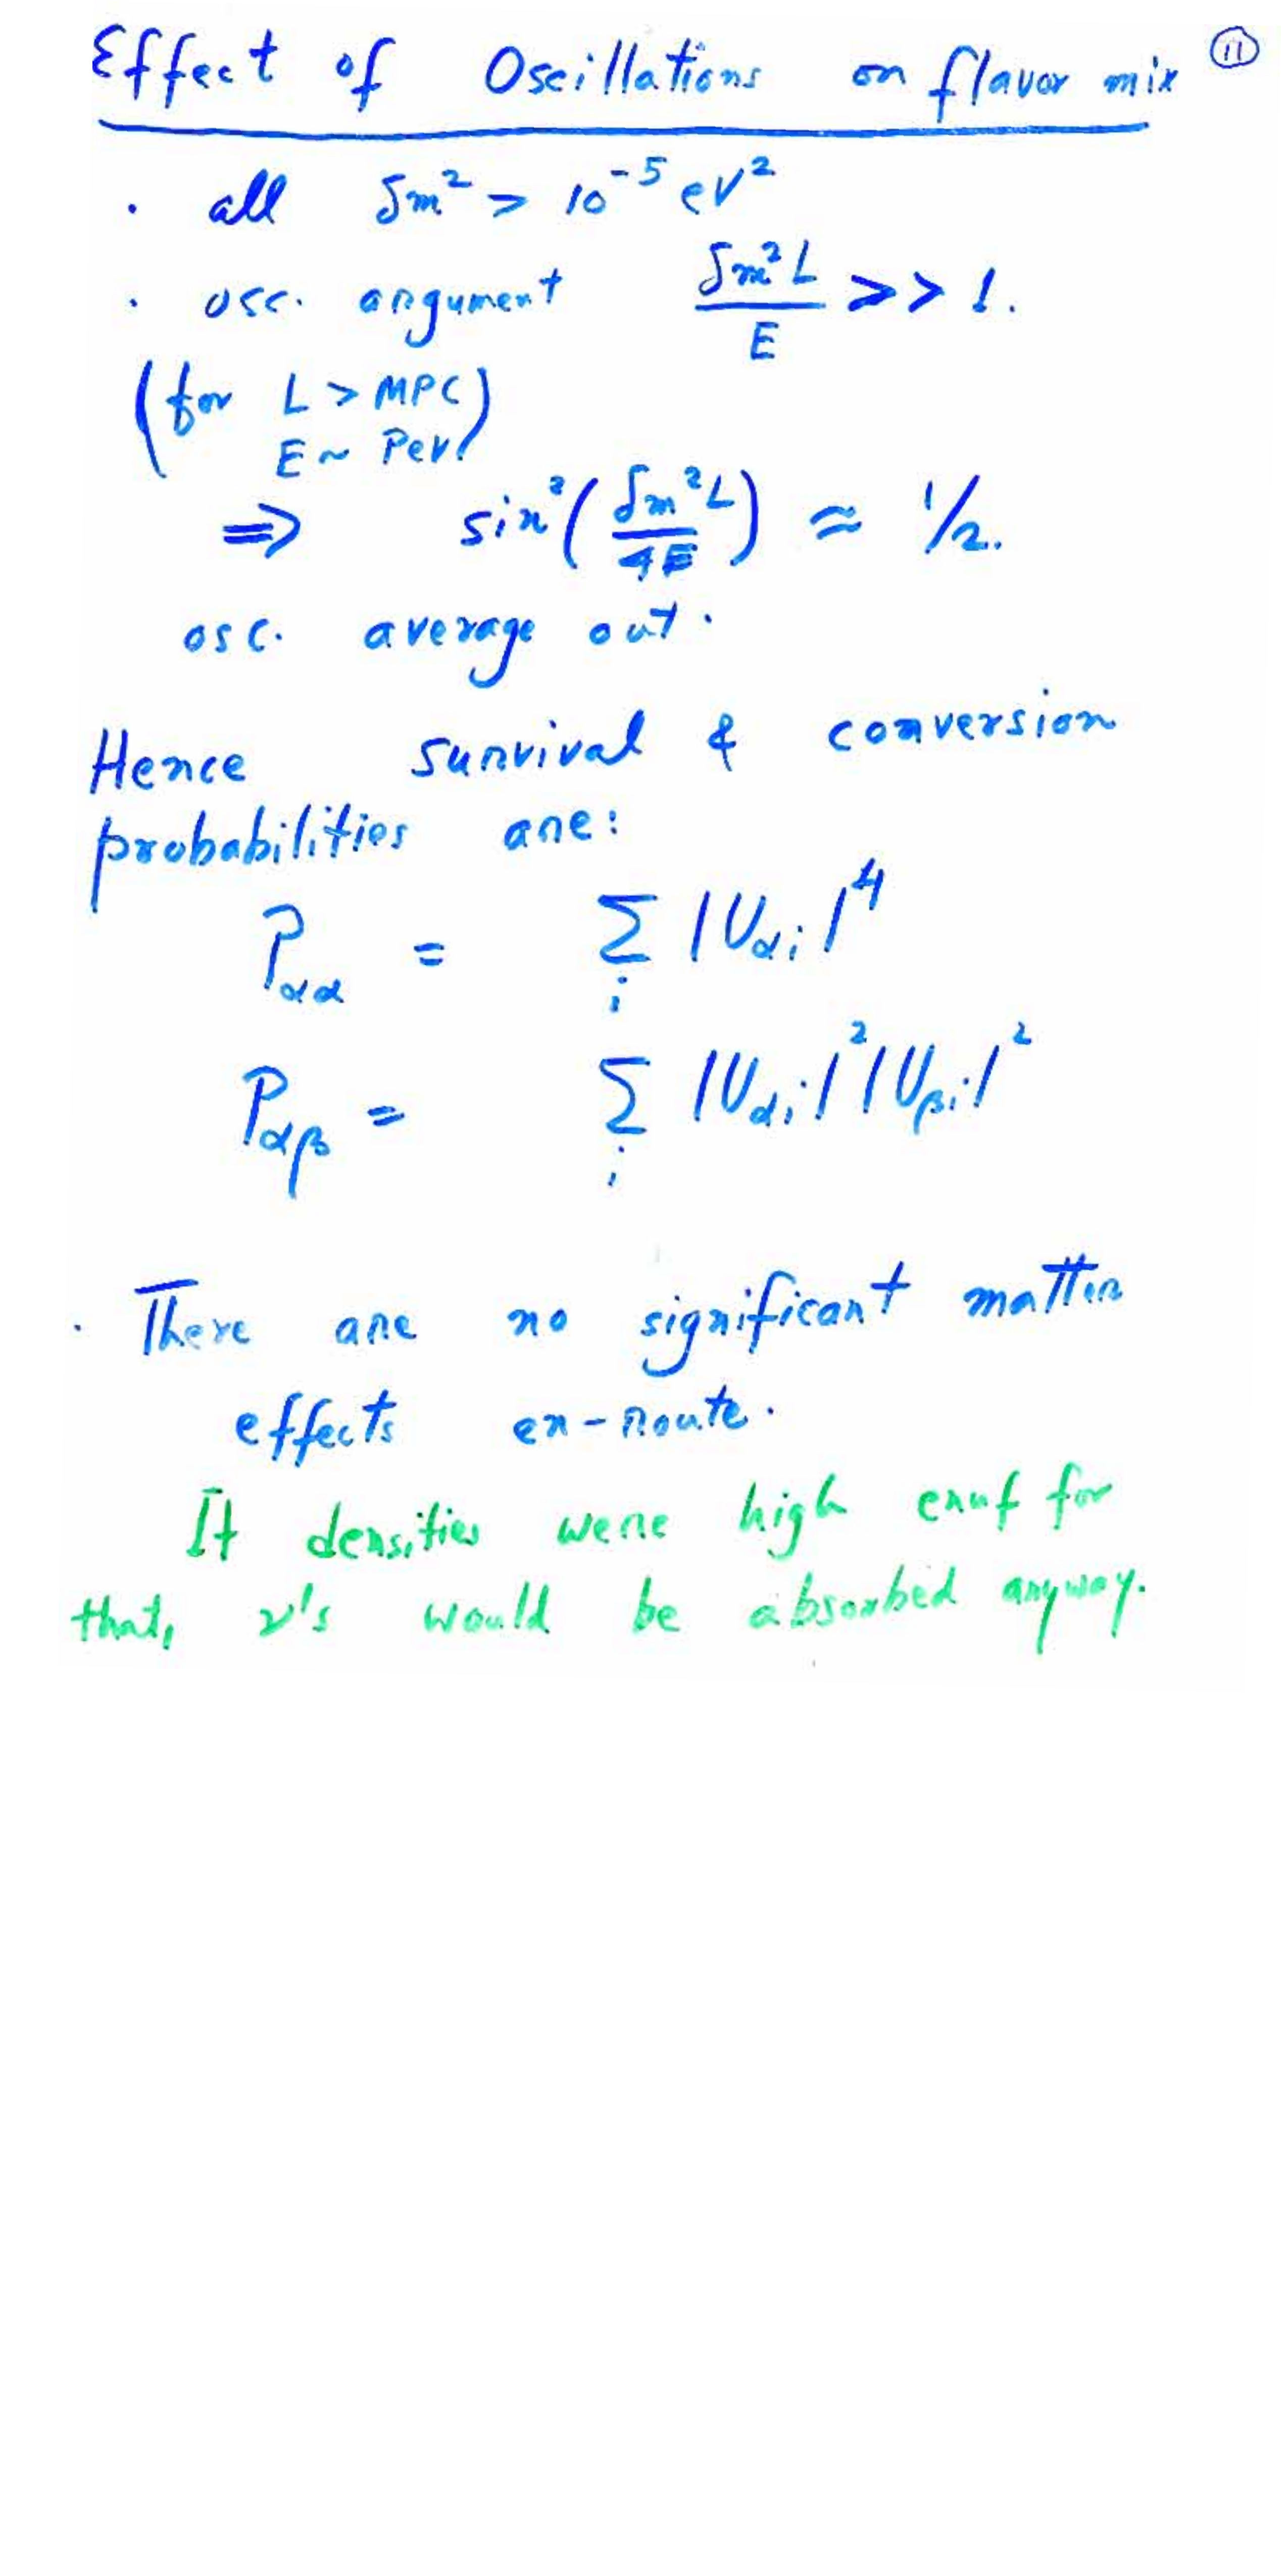 Effect of Oscillations on flavor mix ⑪
· all δm² > 10⁻⁵ eV²
· osc. argument δm²L/E >> 1.
(for L > MPC
E ~ PeV)
⇒ sin²(δm²L/4E) ≈ 1/2.
osc. average out.
Hence survival & conversion
probabilities are:
P_αα = Σ_i |U_αi|⁴
P_αβ = Σ_i |U_αi|²|U_βi|²
· There are no significant matter
effects en-route.
If densities were high enuf for
that, ν's would be absorbed anyway.